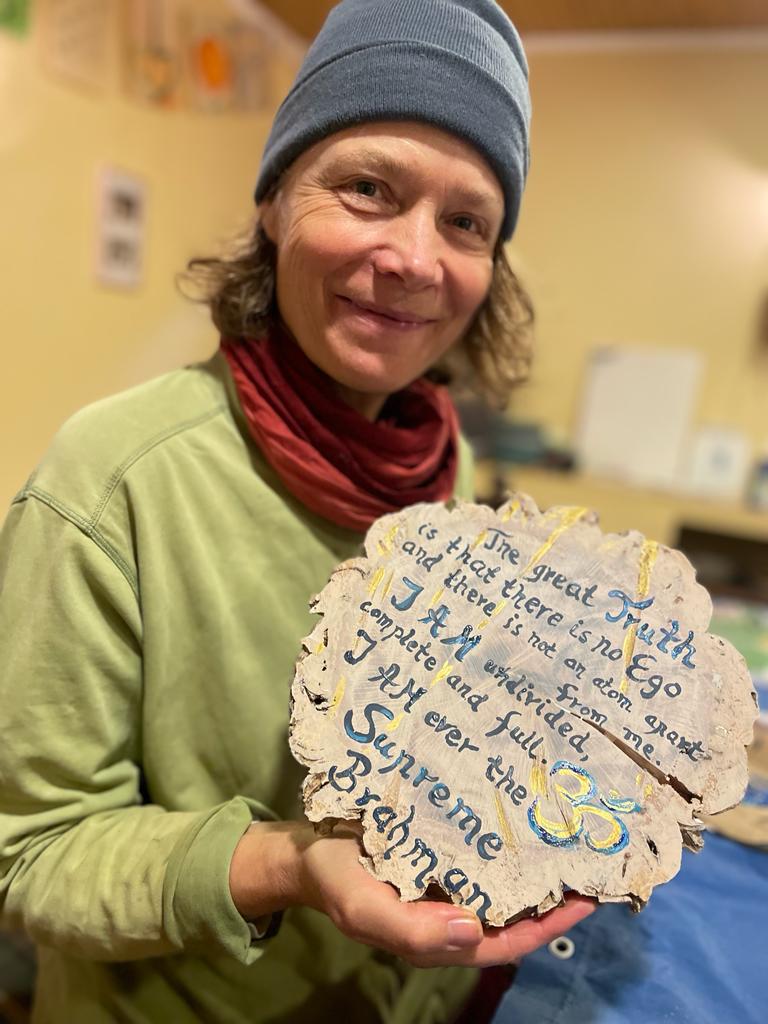 The great Truth
is that there is no Ego
and there is not an atom apart
from me.
I AM undivided,
complete and full.
I AM ever the
Supreme
Brahman
ॐ